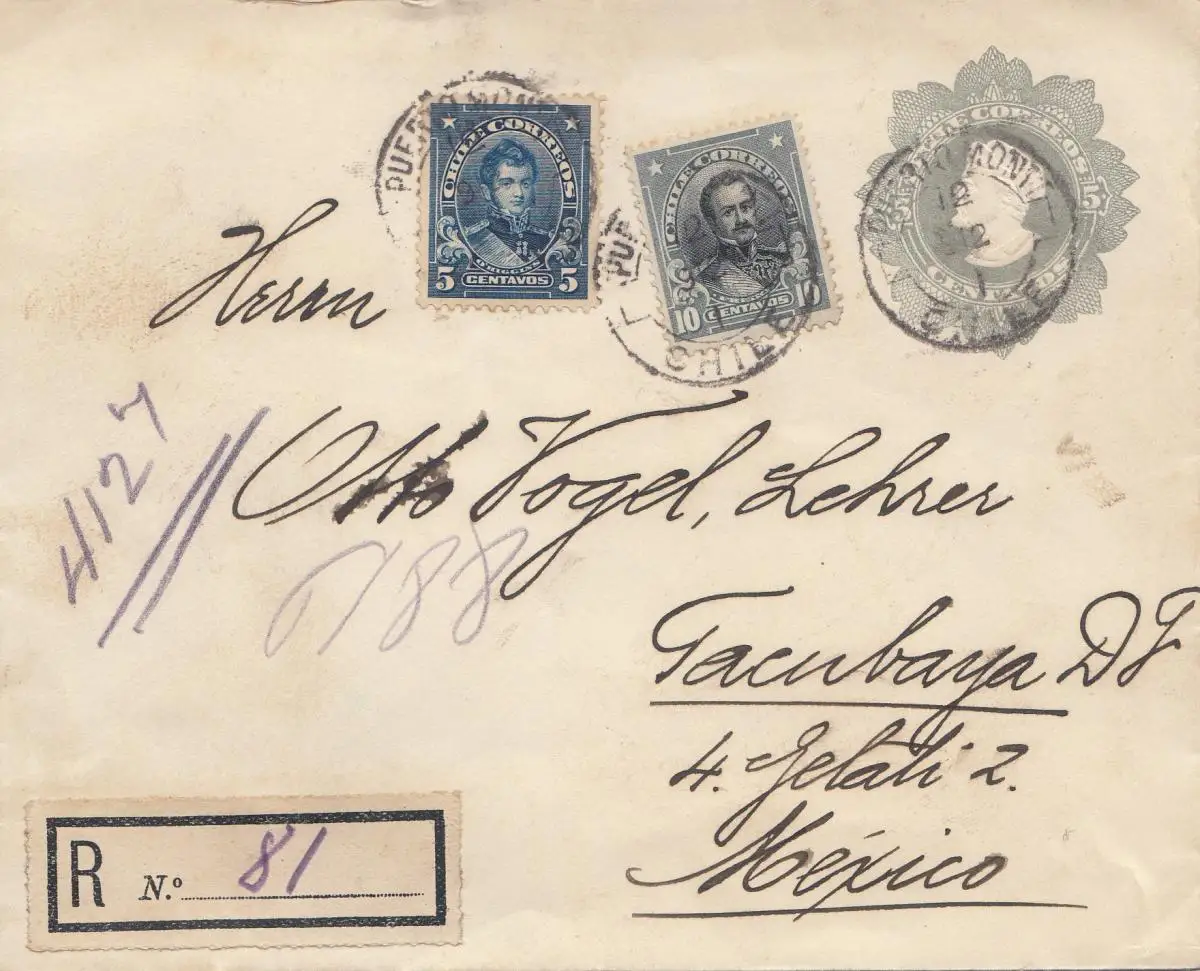 PUERTO MONTT
CHILE CORREOS
O'HIGGINS
5 CENTAVOS 5
CHILE CORREOS
10 CENTAVOS 10
CHILE
CHILE CORREOS
5 CENTAVOS 5
PUERTO MONTT
CHILE
Herrn
Otto Vogel, Lehrer
4127
188
Tacubaya DF
4. Gelati 2.
México
R N.º 81